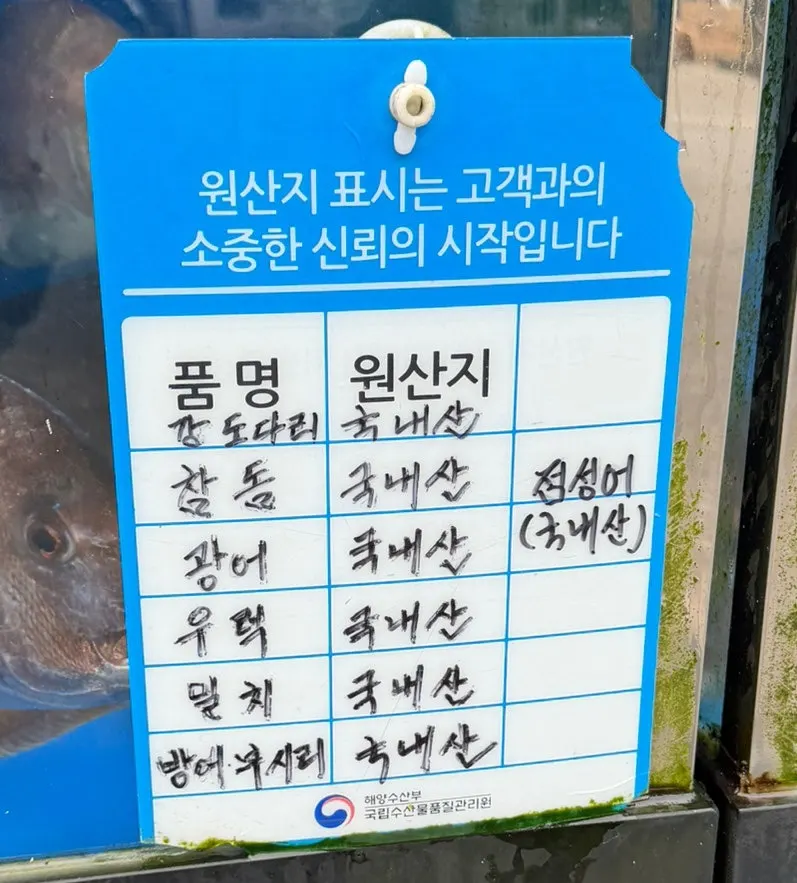 원산지 표시는 고객과의
소중한 신뢰의 시작입니다
품명 원산지
강도다리 국내산
참돔 국내산 점성어
광어 국내산 (국내산)
우럭 국내산
밀치 국내산
방어·부시리 국내산
해양수산부
국립수산물품질관리원